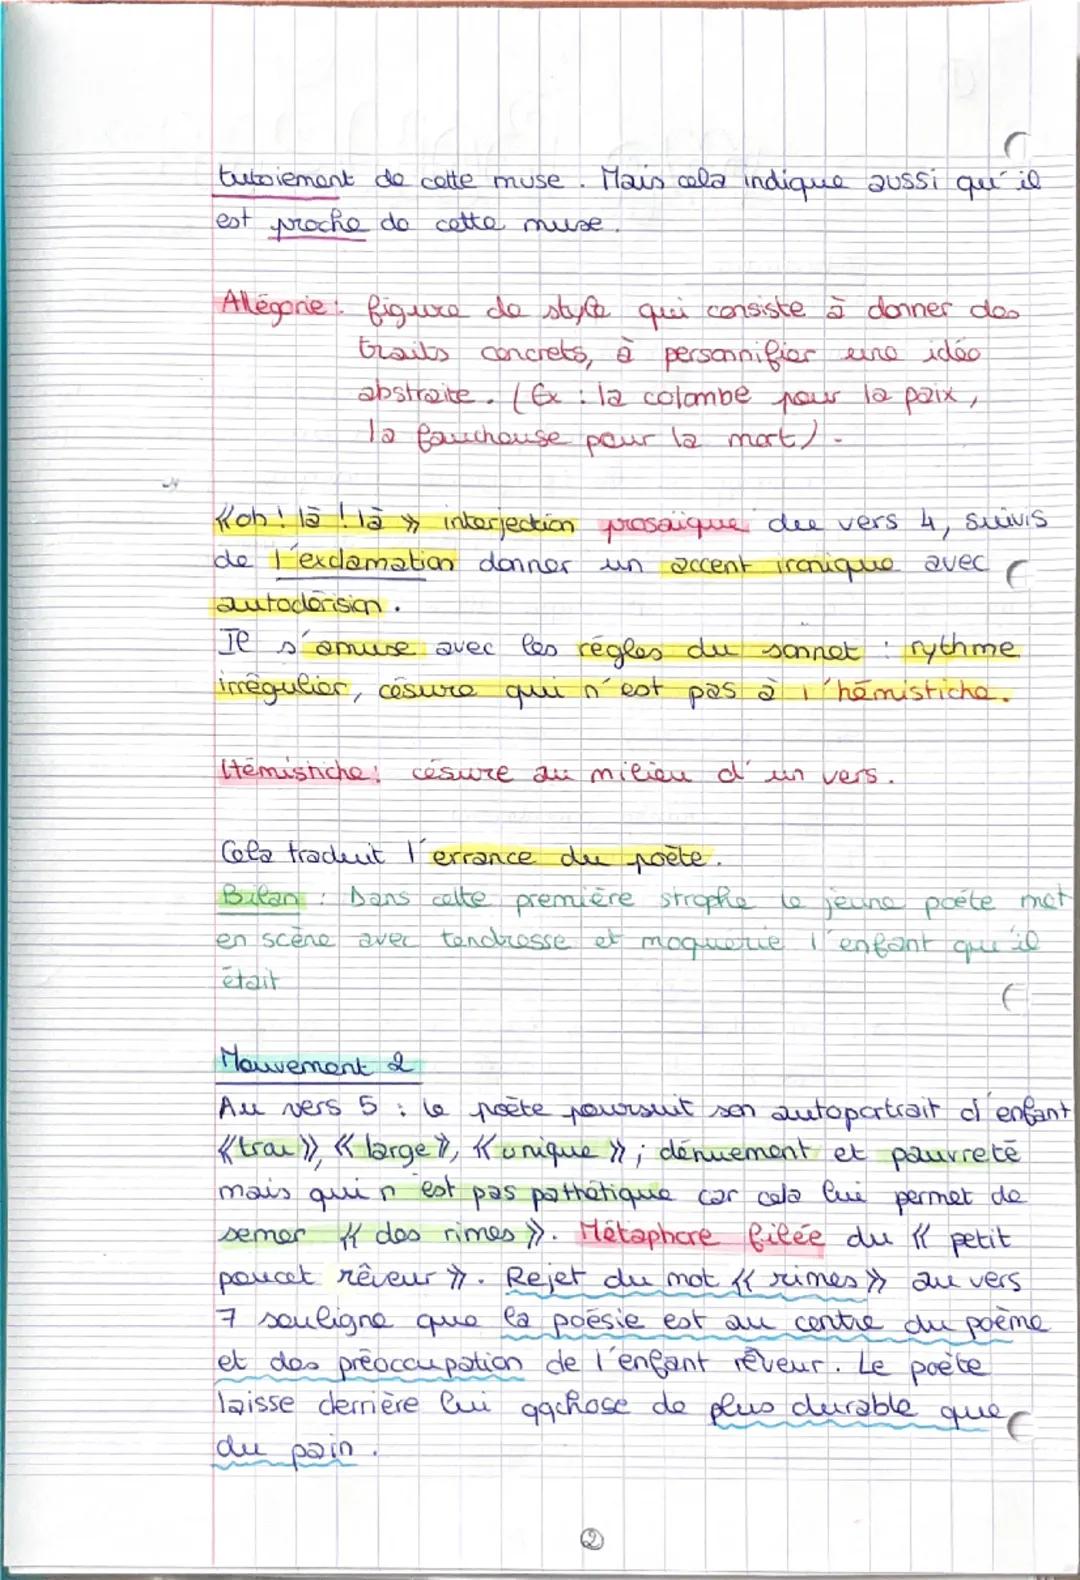 tutoiement de cette muse. Mais cela indique aussi qu'il
est proche de cette muse.
Allégorie : figure de style qui consiste à donner des
traits concrets, à personnifier une idée
abstraite. (Ex : la colombe pour la paix,
la faucheuse pour la mort).
«oh ! là ! là » interjection prosaïque du vers 4, suivis
de l'exclamation donner un accent ironique avec
autodérision.
Il s'amuse avec les règles du sonnet : rythme
irrégulier, césure qui n'est pas à l'hémistiche.
Hémistiche : césure au milieu d'un vers.
Cela traduit l'errance du poète.
Bilan : Dans cette première strophe le jeune poète met
en scène avec tendresse et moquerie l'enfant qu'il
était
Mouvement 2
Au vers 5 : le poète poursuit son autoportrait d'enfant
«trou», « large», « unique » ; dénuement et pauvreté
mais qui n'est pas pathétique car cela lui permet de
semer « des rimes ». Métaphore filée du « petit
poucet rêveur ». Rejet du mot « rimes» au vers
7 souligne que la poésie est au centre du poème
et des préoccupation de l'enfant rêveur. Le poète
laisse derrière lui qqchose de plus durable que
du pain.
2